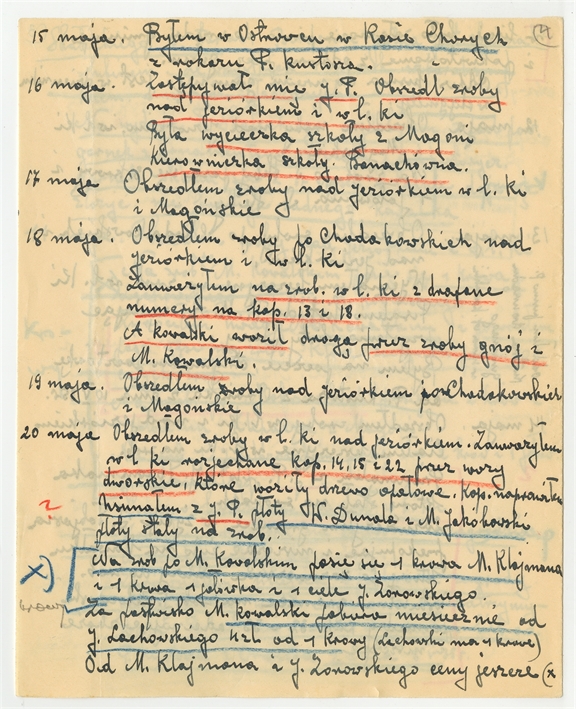 4
15 maja. Byłem w Ostrowcu w Kasie Chorych
z rokazu P. kustosza.
16 maja. Zastępywał mię J. P. Obszedł zroby
nad jeziórkiem i w l. ki
Była wycieczka szkoły z Magoni
kierowniczka szkoły. Banachówna.
17 maja Obszedłem zroby nad jeziórkiem w l. ki
i Magońskie
18 maja. Obszedłem zroby po Chodakowskich nad
jeziorkiem i w l. ki
Zauważyłem na zrob. w l. ki zdrapane
numery na kop. 13 i 18.
A kowalski woził drogą przez zroby gnój i
M. Kowalski.
19 maja. Obszedłem zroby nad jeziórkiem po Chodakowskich
i Magońskie
20 maja Obszedłem zroby w l. ki nad jeziórkiem. Zauważyłem
w l ki rozjechane kop. 14, 15 i 22 przez wozy
dworskie, które woziły drzewo opałowe. kop. naprawiłem
z J. P. płoty W. Dunala i M. Jakóbowski
płoty stały na zrob.
x) Na zrob po M. Kowalskim pasie się 1 krowa M. Klajmana
i 1 krowa 1 jałówka i 1 cielę J. Żorowskiego.
Za pastwisko M. kowalski pobiera miesięcznie od
J. Lachowskiego 4 zł od 1 krowy (Lachowski ma 1 krowę)
Od M. Klajmana i J. Żorowskiego ceny jeszcze (x